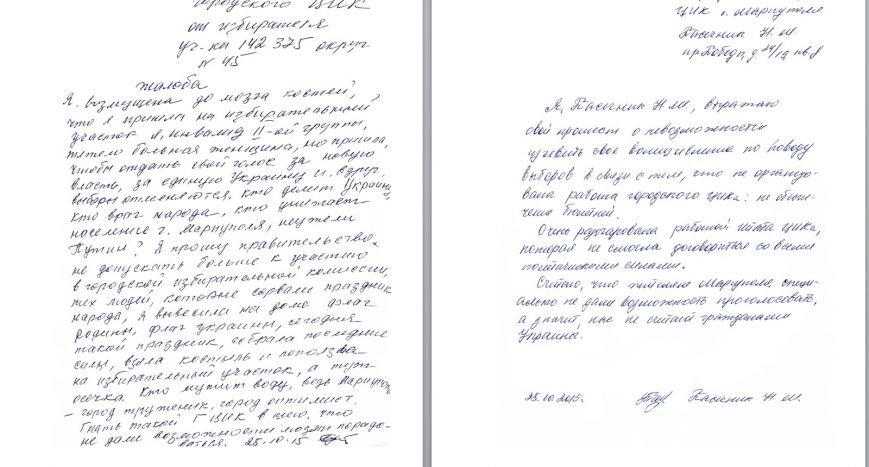 городского ЦИК
от избирателя
уч-ка 142 375 округ
N 45
Жалоба
Я возмущена до мозга костей,
что я пришла на избирательный
участок я, инвалид II-ой группы,
тяжело больная женщина, но пришла,
чтобы отдать свой голос за новую
власть, за единую Украину и вдруг
выборы отменяются, кто делит Украину,
кто враг народа, кто унижает
население г. Мариуполя, неужели
Путин? Я прошу правительство
не допускать больше к участию
в городской избирательной комиссии,
тех людей, которые сорвали праздник
народа, я вывесила на дома флаг
родины, флаг украины, сегодня
такой праздник, собрала последние
силы, взяла костыль и поползла
на избирательный участок, а тут
осечка. Кто мутит воду, ведь Мариуполь
– город труженик, город оптимист.
Гнать такой ГЦИК в шею, что
не дали возможности людям порадо-
ваться. 25.10.15
ЦИК г. Мариуполя
Касечник Н. М.
пр Победы, д. 24/19 кв. 8
Я, Касечник Н М, выражаю
свой протест о невозможности
изъявить свое волеизъявление по поводу
выборов в связи с тем, что не организо-
вана работа городского цика: не обеспе-
чена бюллетней.
Очень разочарована работой штата цика,
которая не смогла договориться со всеми
политическими силами.
Считаю, что жителям Мариуполя специ-
ально не дали возможность проголосовать,
а значит, нас не считают гражданами
Украины.
25.10.2015г. Касечник Н. М.